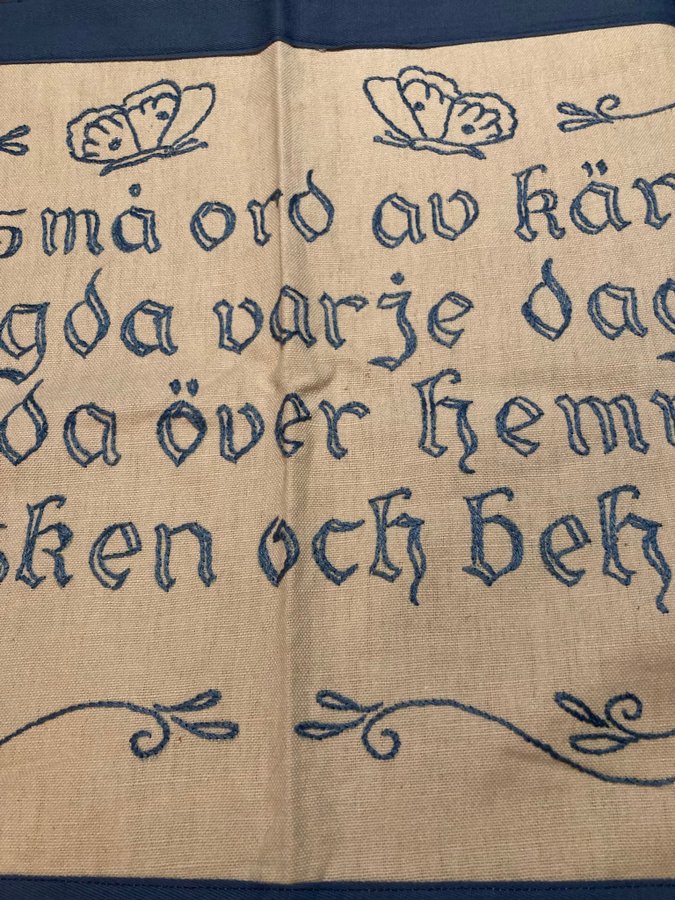 små ord av kär
gda varje dag
da över hem
sken och beh